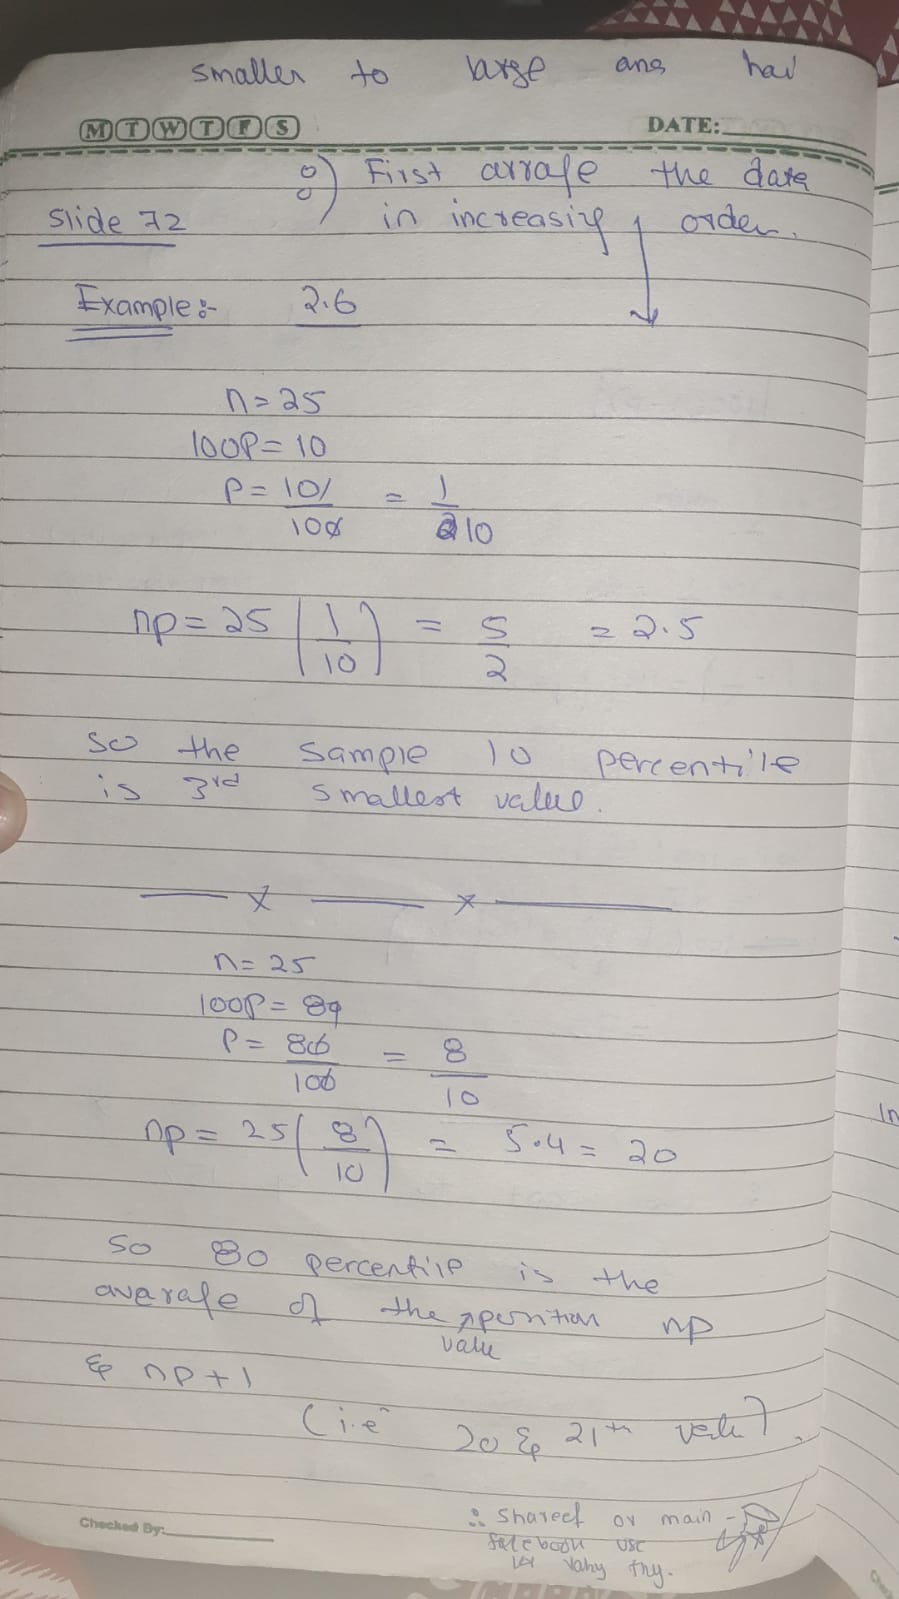 smaller to large ans hai
M T W T F S
DATE:
First arrafe the data
Slide 72
in increasing order.
Example:- 2.6
n = 25
100P = 10
P = 10/100 = 1/10
np = 25 (1/10) = 5/2 = 2.5
so the sample 10 percentile
is 3rd smallest value.
n = 25
100P = 80
P = 80/100 = 8/10
np = 25 (8/10) = 5.4 = 20
so 80 percentile is the
average of the position np
value
& np + 1
(i.e 20 & 21th value)
∴ Shareef or main
use
thy.
Checked By:
In
Chec